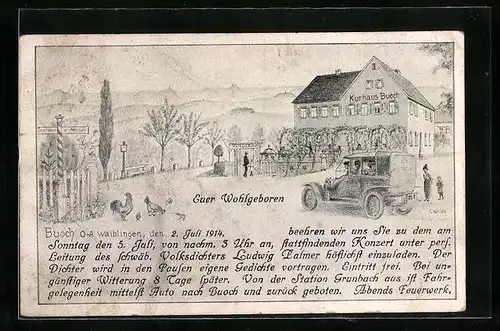 Kurhaus Buoch
Euer Wohlgeboren
Buoch O-A. Waiblingen, den 2. Juli 1914. beehren wir uns Sie zu dem am
Sonntag den 5. Juli, von nachm. 3 Uhr an, stattfindenden Konzert unter pers.
Leitung des schwäb. Volksdichters Ludwig Palmer höflichst einzuladen. Der
Dichter wird in den Pausen eigene Gedichte vortragen. Eintritt frei. Bei un-
günstiger Witterung 8 Tage später. Von der Station Grunbach aus ist Fahr-
gelegenheit mittelst Auto nach Buoch und zurück geboten. Abends Feuerwerk.